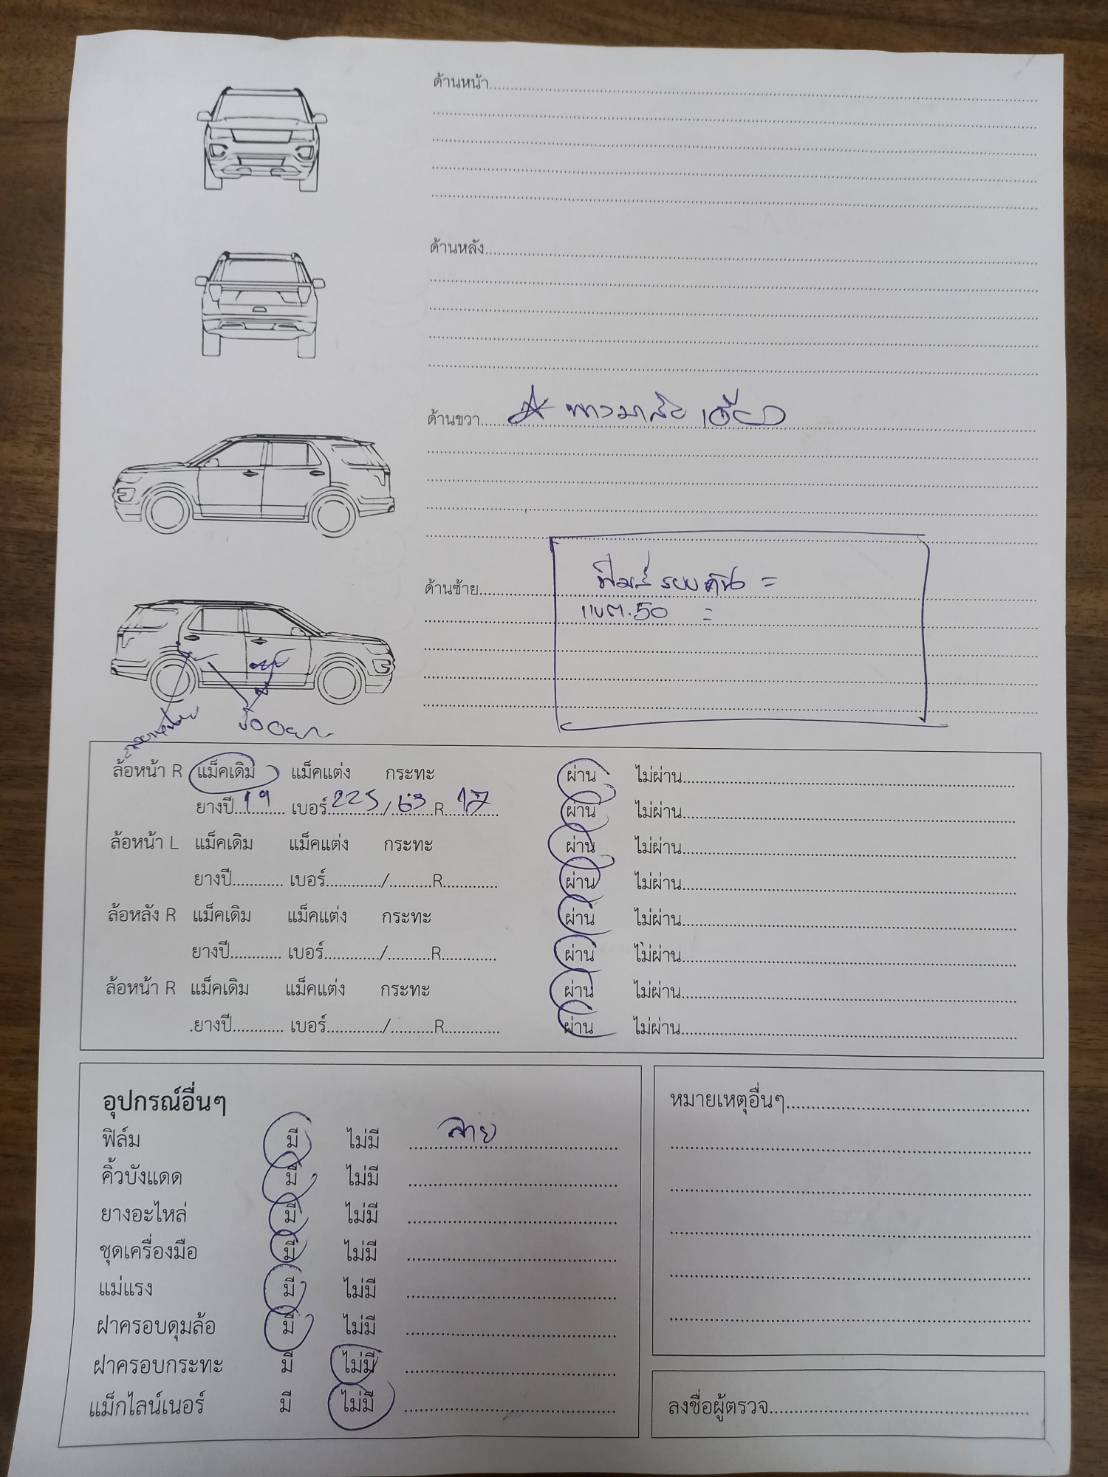 ด้านหน้า
ด้านหลัง
ด้านขวา พวงมาลัย เอียง
ด้านซ้าย
ฟิมล์รอบคัน =
แบต.50 =
ล้อหน้า R แม็คเดิม แม็คแต่ง กระทะ ผ่าน ไม่ผ่าน
ยางปี 19 เบอร์ 225/65 R 17 ผ่าน ไม่ผ่าน
ล้อหน้า L แม็คเดิม แม็คแต่ง กระทะ ผ่าน ไม่ผ่าน
ยางปี เบอร์ / R ผ่าน ไม่ผ่าน
ล้อหลัง R แม็คเดิม แม็คแต่ง กระทะ ผ่าน ไม่ผ่าน
ยางปี เบอร์ / R ผ่าน ไม่ผ่าน
ล้อหน้า R แม็คเดิม แม็คแต่ง กระทะ ผ่าน ไม่ผ่าน
.ยางปี เบอร์ / R ผ่าน ไม่ผ่าน
อุปกรณ์อื่นๆ
ฟิล์ม มี ไม่มี
คิ้วบังแดด มี ไม่มี
ยางอะไหล่ มี ไม่มี
ชุดเครื่องมือ มี ไม่มี
แม่แรง มี ไม่มี
ฝาครอบดุมล้อ มี ไม่มี
ฝาครอบกระทะ มี ไม่มี
แม็กไลน์เนอร์ มี ไม่มี
หมายเหตุอื่นๆ
ลงชื่อผู้ตรวจ